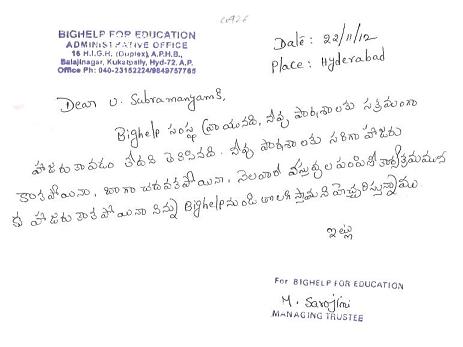 BIGHELP FOR EDUCATION
ADMINISTRATIVE OFFICE
16 H.I.G.H. (Duplex), A.P.H.B.,
Balajinagar, Kukatpally, Hyd-72, A.P.
Office Ph: 040-23152224/9849757765
Date: 22/11/12
Place: Hyderabad
Dear U. Subramanyam కి,
Bighelp సంస్థ వ్రాయునది, నీవు పాఠశాలకు సక్రమంగా
హాజరు కావడం లేదని తెలిసినది. నీవు పాఠశాలకు సరిగా హాజరు
కాకపోయినా, బాగా చదవకపోయినా, నెలవారీ
హాజరు కాకపోయినా నిన్ను Bighelp నుండి తొలగిస్తామని హెచ్చరిస్తున్నాము.
ఇట్లు
For BIGHELP FOR EDUCATION
M. Sarojini
MANAGING TRUSTEE